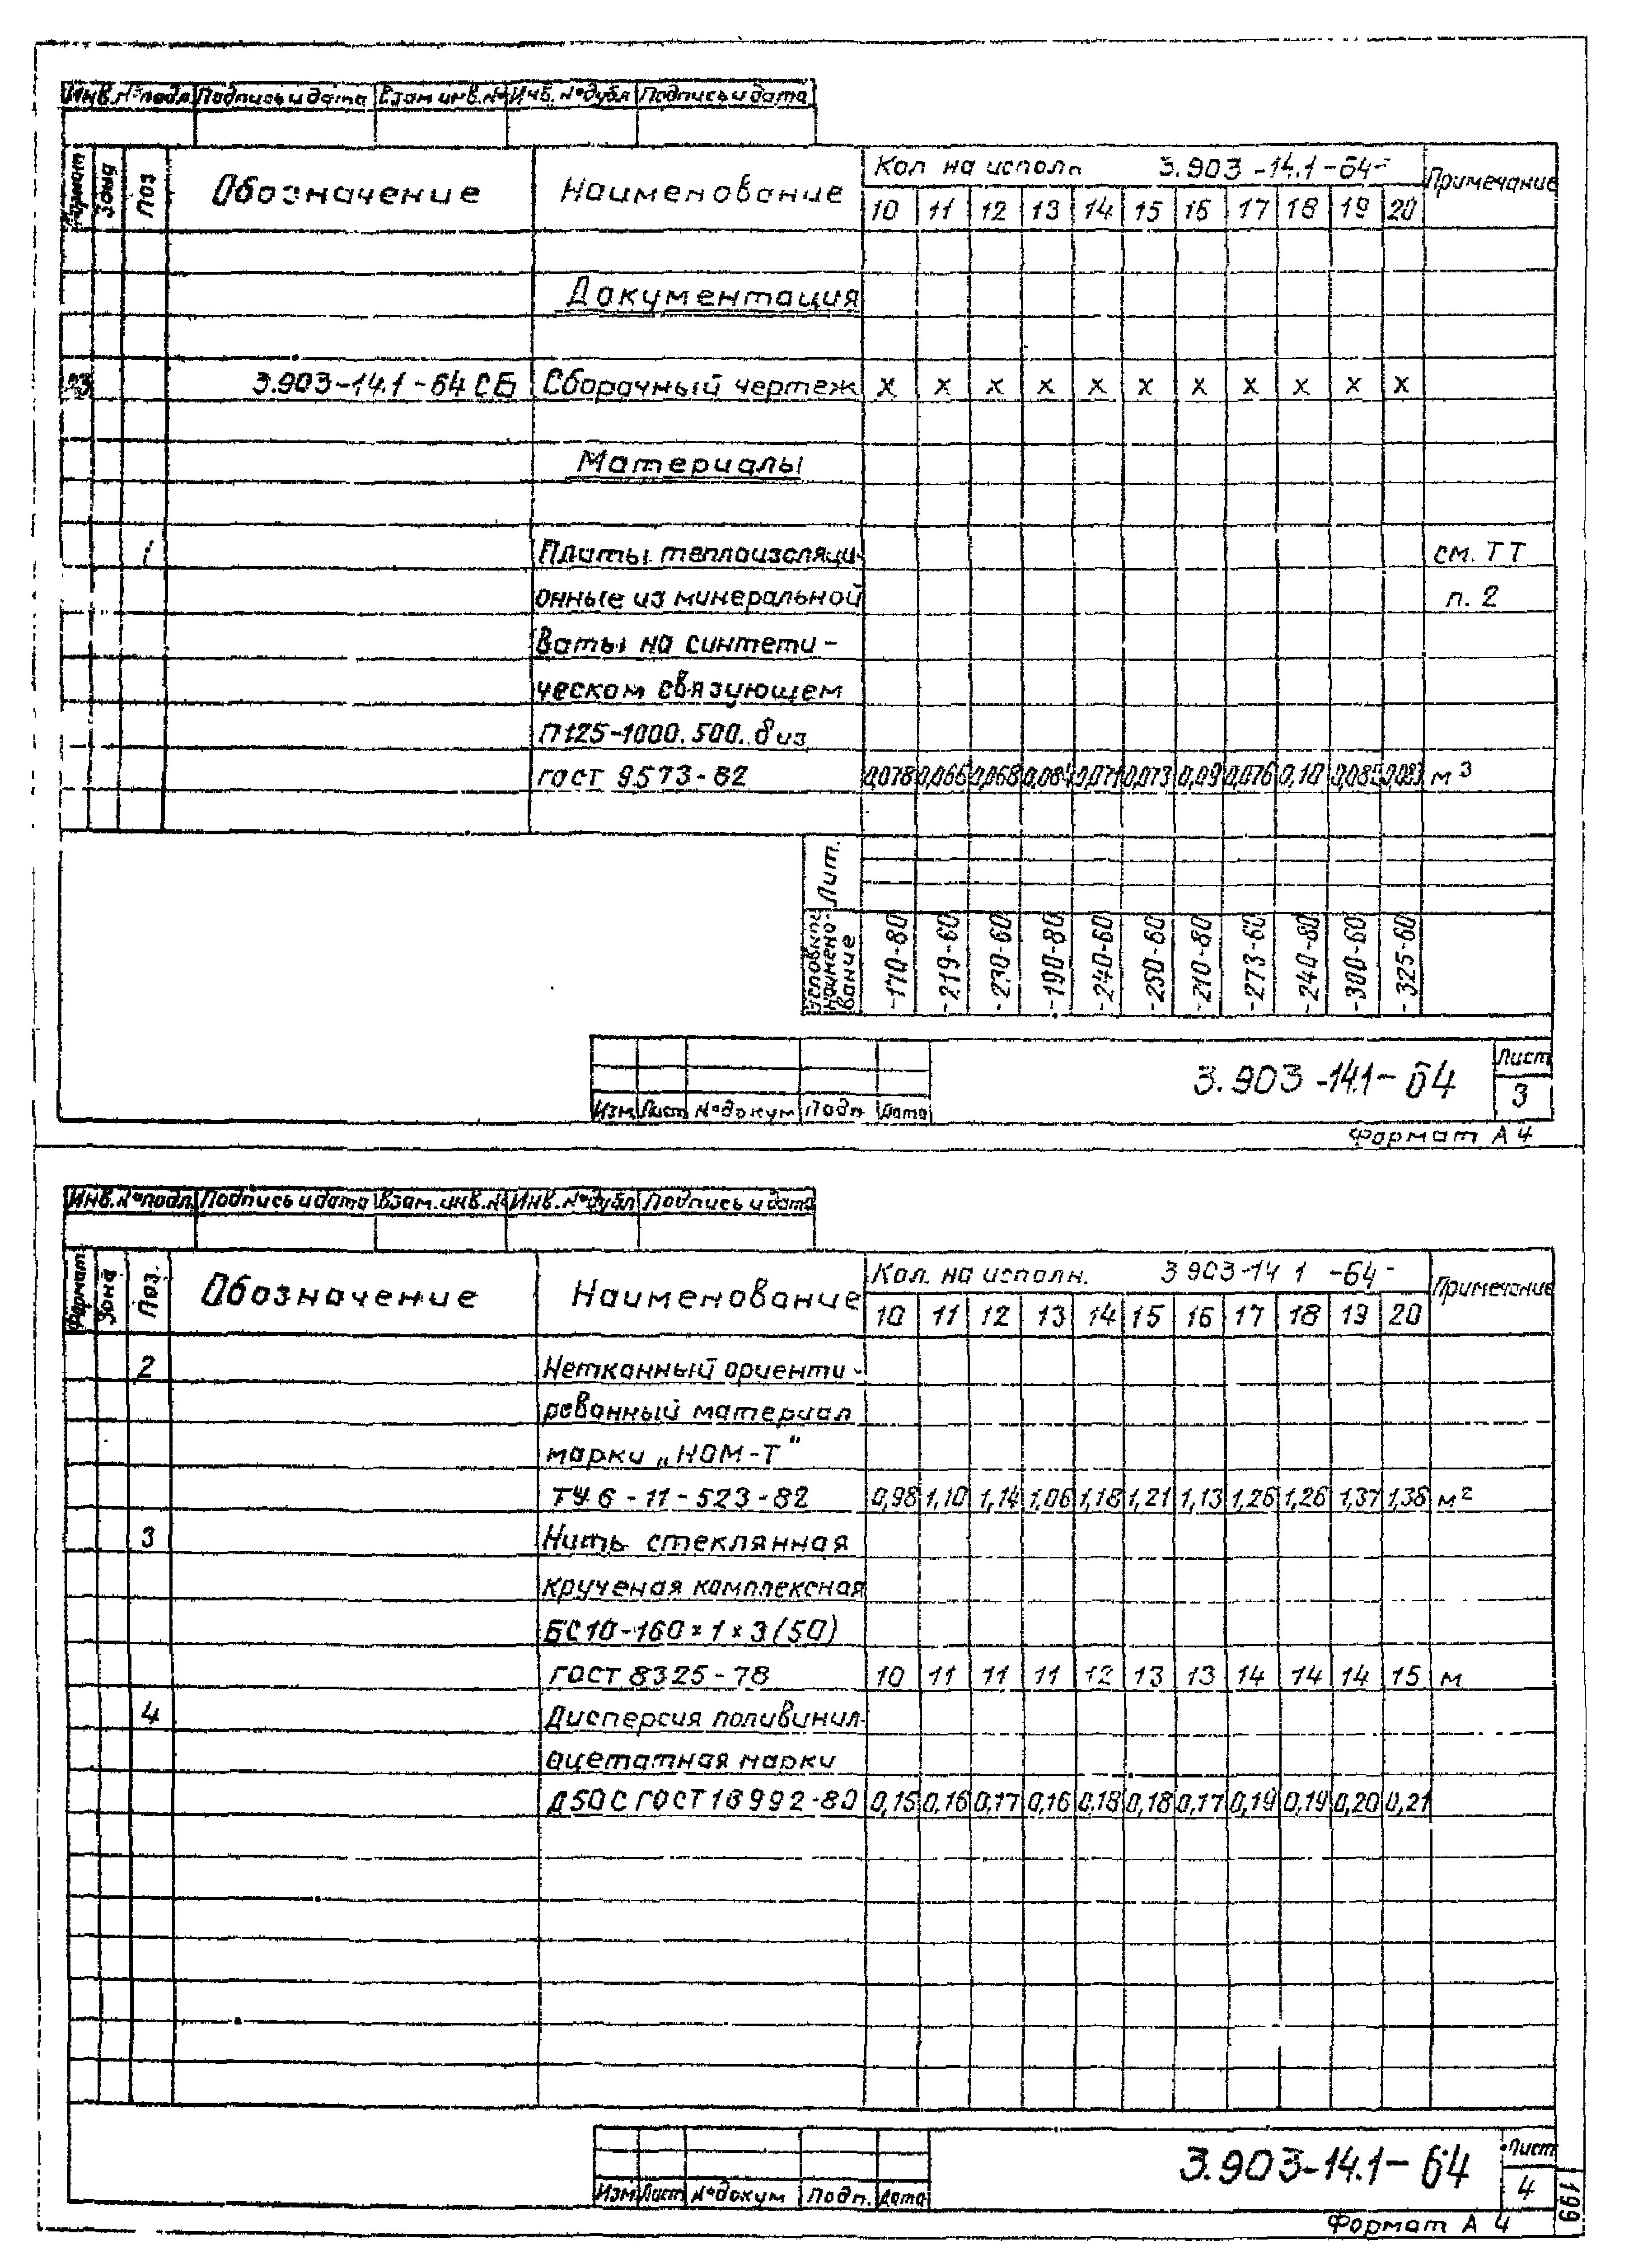 Инв.№подл Подпись и дата Взам инв.№ Инв.№дубл Подпись и дата
Формат Зона Поз Обозначение Наименование Кол на исполн 3.903-14.1-64- Примечание
10 11 12 13 14 15 16 17 18 19 20
Документация
3.903-14.1-64 СБ Сборочный чертеж х х х х х х х х х х х
Материалы
1 Плиты теплоизоляци- см. ТТ
онные из минеральной п. 2
ваты на синтети-
ческом связующем
П125-1000.500.
гост 9573-82 0,078 0,066 0,068 0,084 0,071 0,073 0,09 0,076 0,10 м³
Лит.
Условное наименование -170-80 -219-60 -230-60 -190-80 -240-60 -250-60 -210-80 -273-60 -240-80 -300-60 -325-60
3.903-14.1-64 Лист
3
Изм Лист №докум Подп. Дата
Формат А4
Инв.№подл. Подпись и дата Взам.инв.№ Инв.№дубл Подпись и дата
Формат Зона Поз. Обозначение Наименование Кол. на исполн. 3 903-14 1 -64- Примечание
10 11 12 13 14 15 16 17 18 19 20
2 Нетканный ориенти-
рованный материал
марки „НОМ-Т"
ТУ 6-11-523-82 0,98 1,10 1,14 1,06 1,18 1,21 1,13 1,26 1,26 1,37 1,38 м²
3 Нить стеклянная
крученая комплексная
БС10-160×1×3(50)
гост 8325-78 10 11 11 11 12 13 13 14 14 14 15 м
4 Дисперсия поливинил-
ацетатная марки
Д50С ГОСТ 18992-80 0,15 0,16 0,17 0,16 0,18 0,18 0,17 0,19 0,19 0,20 0,21
3.903-14.1-64 Лист
4
Изм Лист №докум Подп. Дата
Формат А 4
199